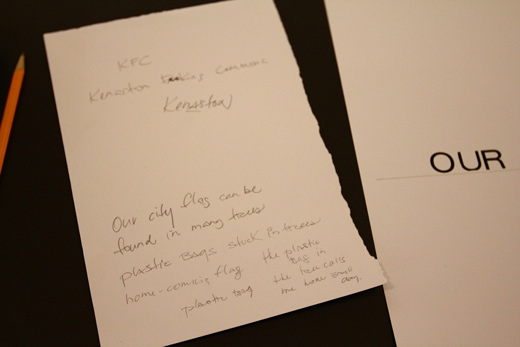 KFC
Kenaston Commons
Kenaston
Our city flag can be
found in many trees
plastic bags stuck in trees
home-coming flag
the plastic
bag in
plastic bag
the tree calls
me home every
day.
OUR